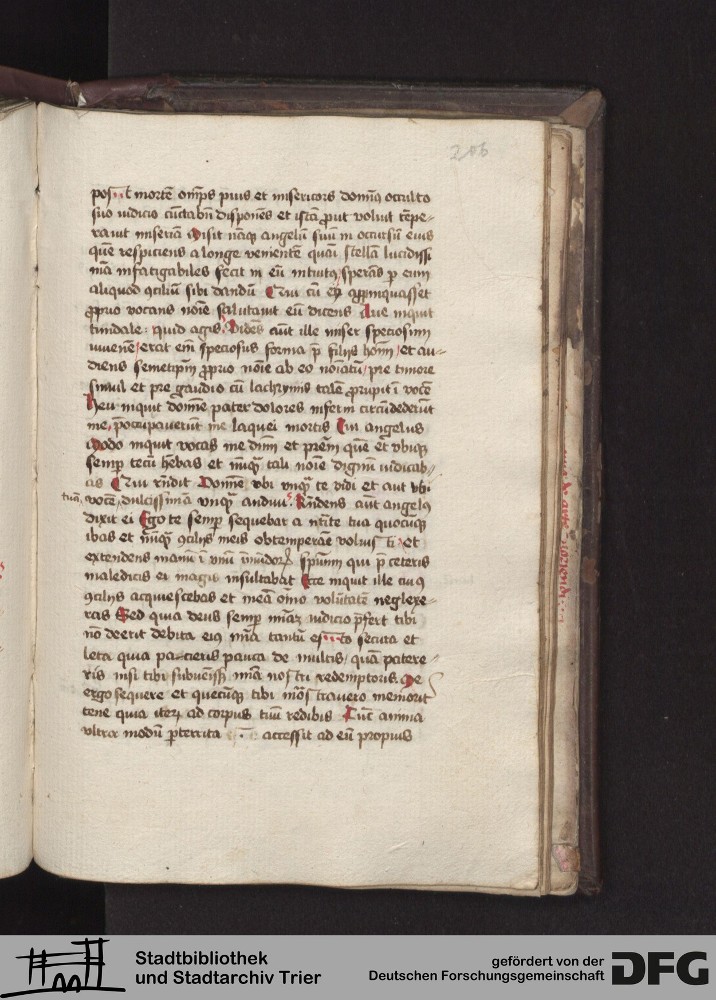 206
post mortē omīps pius et misericors dominꝰ occulto
suo iudicio cūcta bn̄ disponēs et ista ꝓut voluit tēpe-
rauit miseriā Misit nāqꝫ angelū suū in occursū eius
quē respiciens a longe venientē quasi stellā lucidissi
mā infatigabiles fecit in eū intuitꝰ sperās ꝑ eum
aliquod ꝯsiliū sibi dandū Qui cū ei appinquasset
ꝓprio vocans noīe salutauit eū dicens Aue inquit
tundale: quid agis Videns aūt ille miser speciosum
iuuenē erat em̄ speciosus forma p̄ filijs hoīm et au-
diens semetipm̄ ꝓprio noīe ab eo noīatū pre timore
simul et pre gaudio cū lachrymis talē prupit ī vocē
Heu inquit domine pater dolores inferni circūdederūt
me p̄occupauerūt me laquei mortis Cui angelus
Modo inquit vocas me dnm̄ et prēm quē et vbiqꝫ
semp̄ tecū hēbas et nūqꝫ tali noīe dignū iudicab-
as Qui rn̄dit Domine vbi vnqꝫ te vidi et aut vbi
tuā vocē dulcissimā vnqꝫ audiui Rn̄dens aūt angelꝰ
dixit ei Ego te semp̄ sequebar a natiuitate tua quocūqꝫ
ibas et nūqꝫ ꝯsilijs meis obtemperare voluisti et
extendens manū ī vnū īmūdorꝝ spūum qui p̄ ceteris
maledicis ei magis insultabat Ecce inquit ille cuiꝰ
ꝯsilijs acquiescebas et meā oīno volūtatē neglexe-
ras Sed quia deus semp̄ mīaꝫ iudicio p̄fert tibi
nō deerit debita eiꝰ mīa tantū esto secura et
leta quia pacieris pauca de multis quā patere-
ris nisi tibi subuenisset mīa nostri redemptoris Me
ergo sequere et quecūqꝫ tibi mōstrauero memorit
tene quia iterꝫ ad corpus tuū redibis Tūc anima
vltra modū p̄territa accessit ad eū propius
Stadtbibliothek
und Stadtarchiv Trier
gefördert von der
Deutschen Forschungsgemeinschaft
DFG